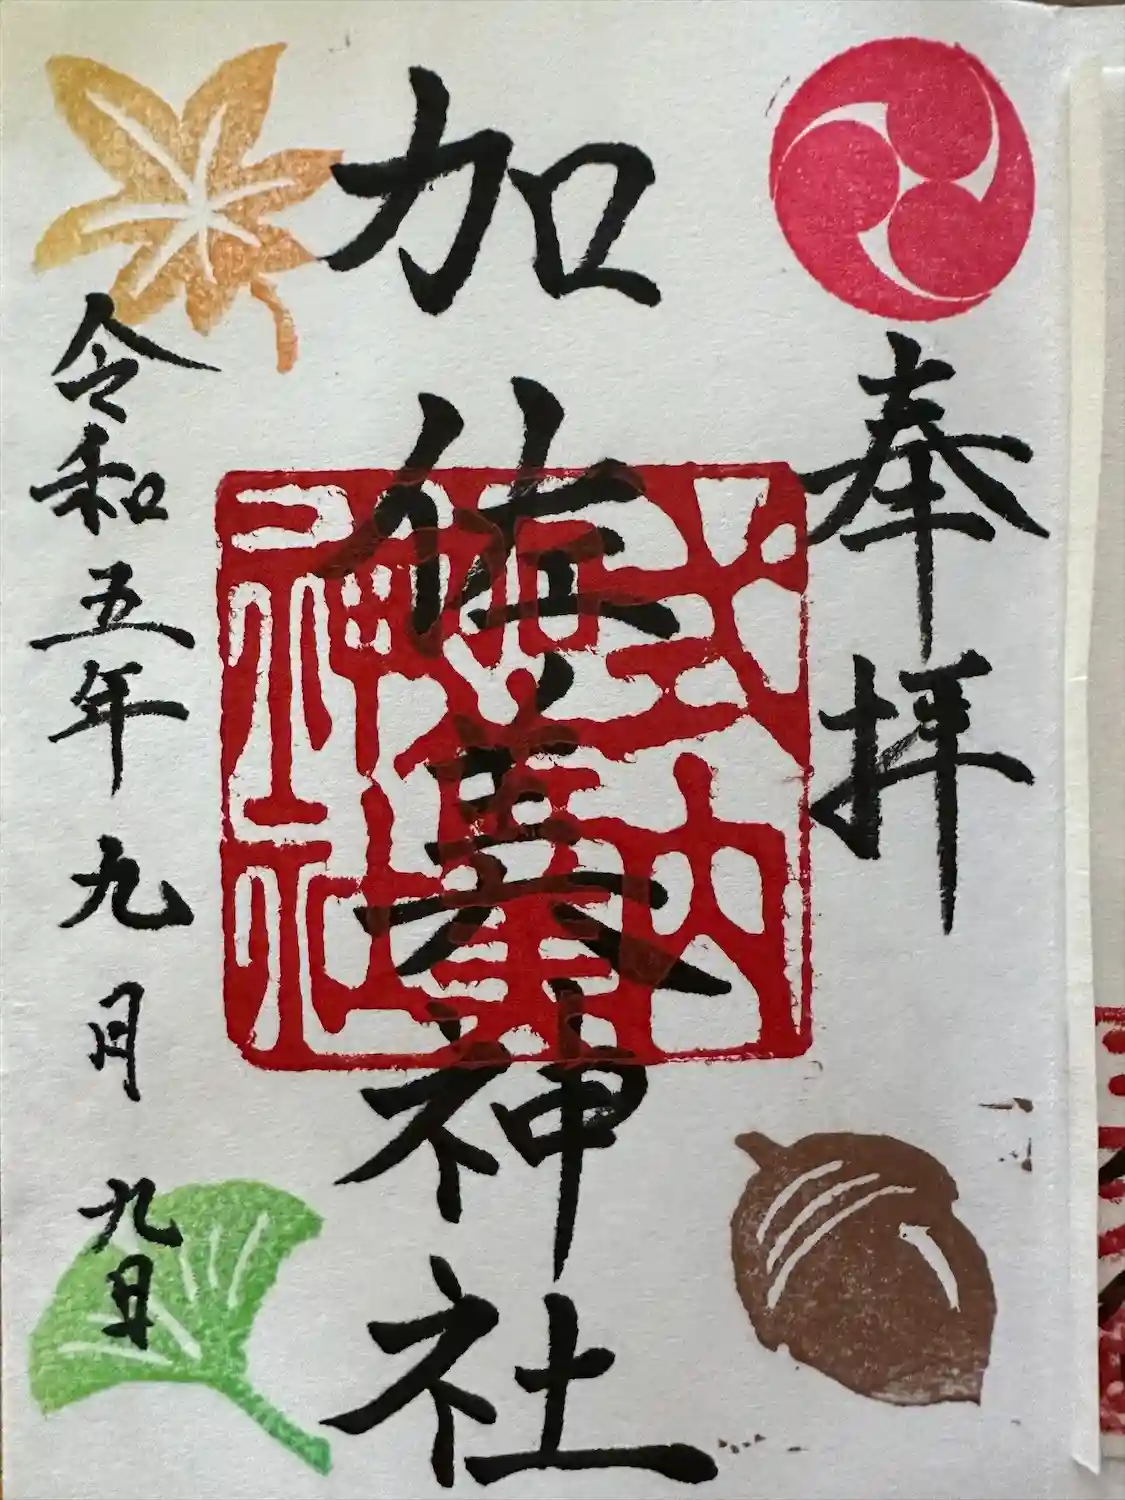 奉拝
加佐美神社
令和五年九月九日
式内
神社